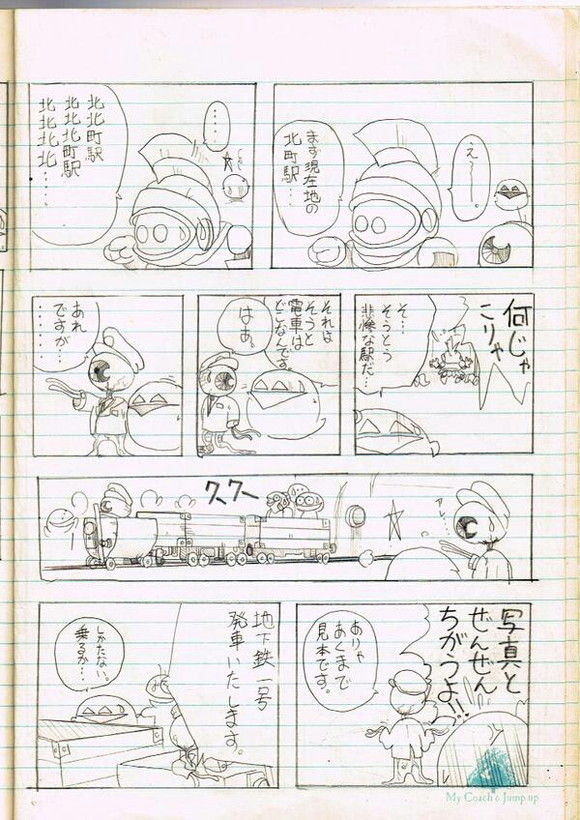 え〜。
まず現在地の
北町駅…
‥‥
北北町駅
北北北町駅
北北北北‥‥
何じゃ
こりゃ
そ…
そうとう
悲惨な駅だ…
それは
そうと
電車は
どこなんです
はあ。
あれ
ですが…
‥‥‥
アレ…
クークー
写真と
ぜんぜん
ちがうよ!!
ありゃ
あくまで
見本です。
地下鉄一号
発車いたします。
しかたない。
乗るか…
My Coach & Jump up